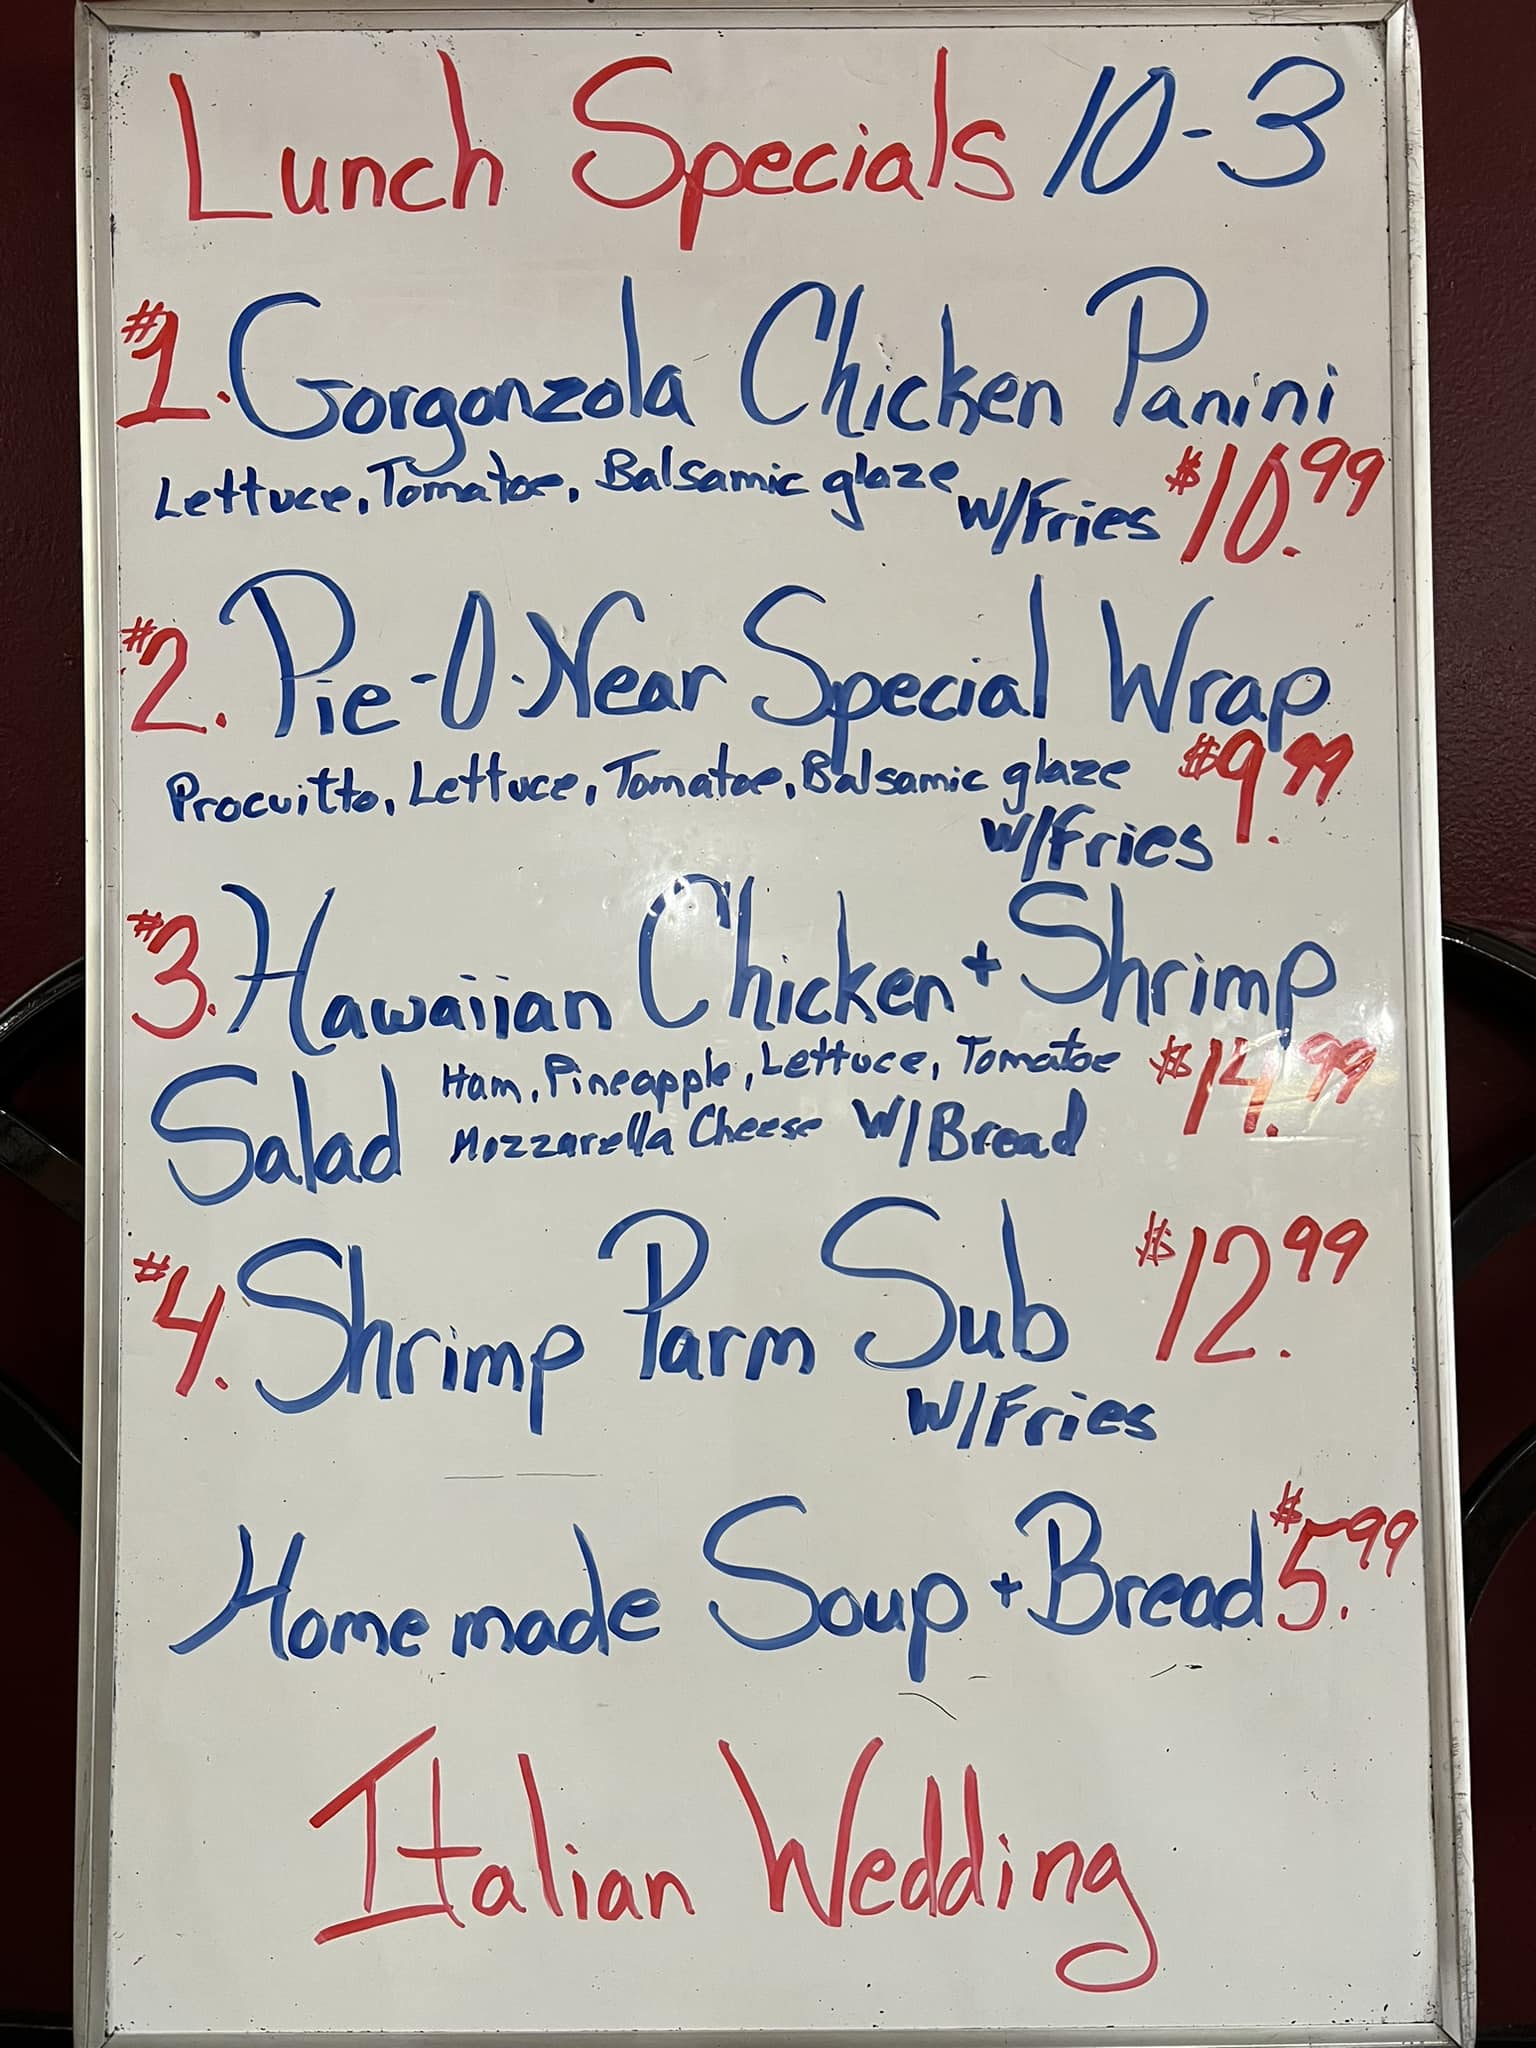 Lunch Specials 10-3
#1. Gorgonzola Chicken Panini
Lettuce, Tomatoe, Balsamic glaze w/Fries $10.99
#2. Pie-O-Near Special Wrap
Procuitto, Lettuce, Tomatoe, Balsamic glaze $9.99
w/Fries
#3. Hawaiian Chicken + Shrimp
Salad Ham, Pineapple, Lettuce, Tomatoe $14.99
Mozzarella Cheese w/Bread
#4. Shrimp Parm Sub $12.99
w/Fries
Homemade Soup + Bread $5.99
Italian Wedding